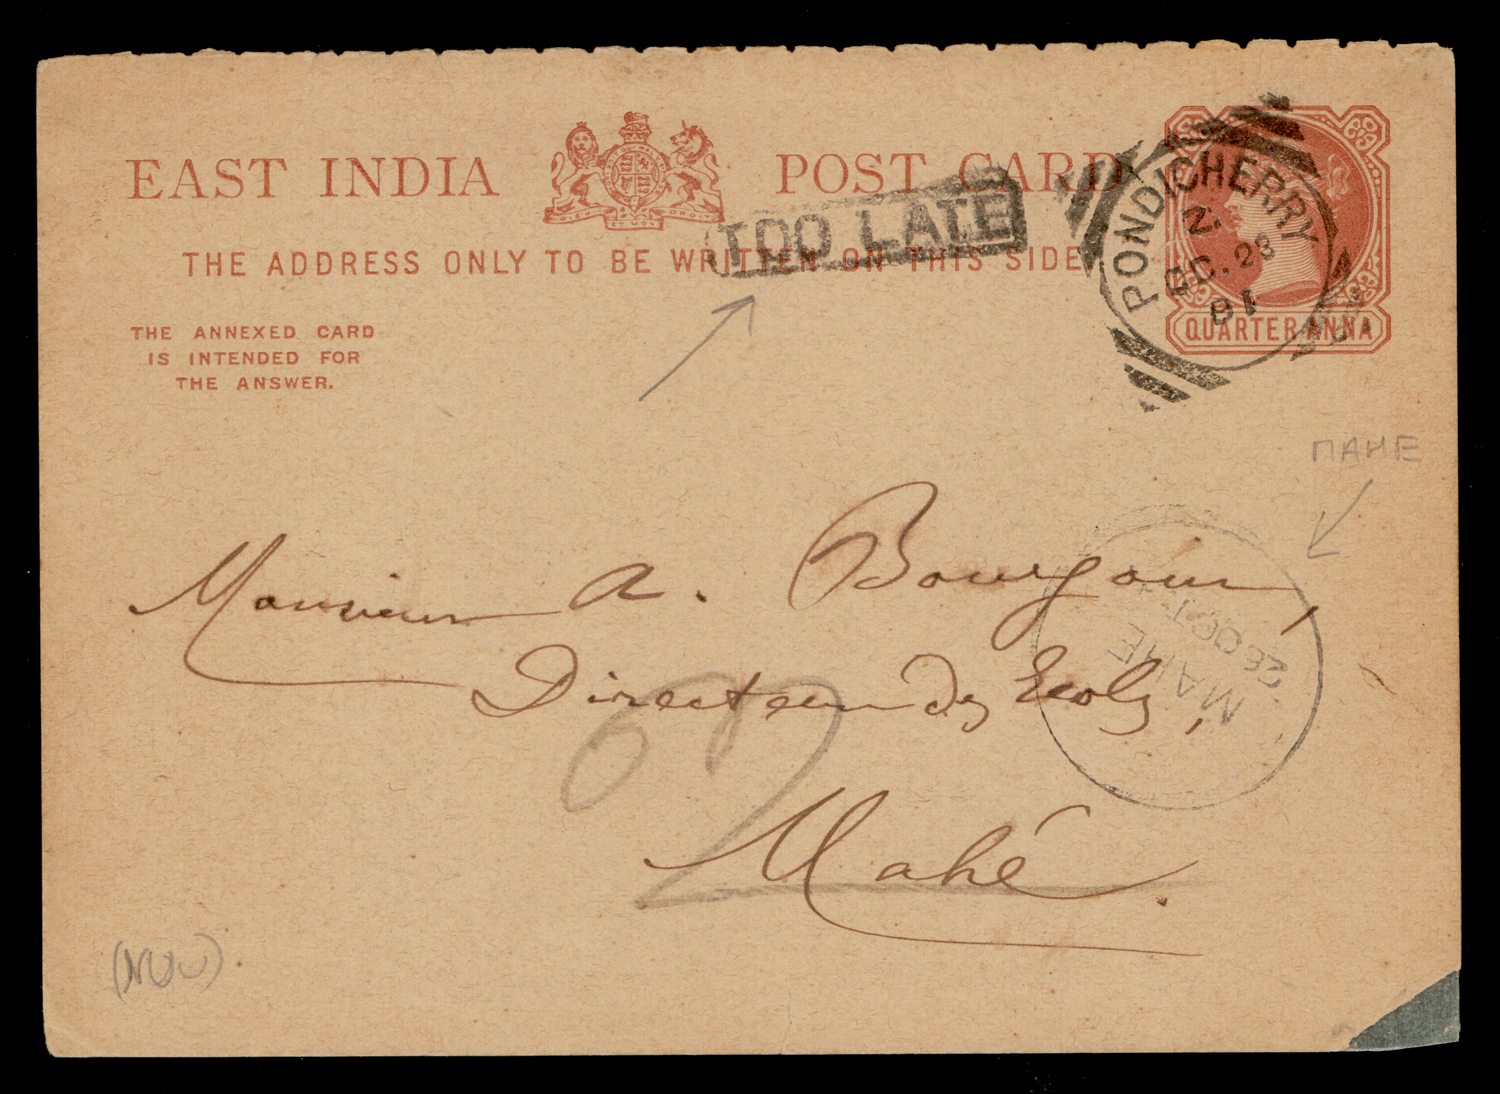 EAST INDIA POST CARD
THE ADDRESS ONLY TO BE WRITTEN ON THIS SIDE
TOO LATE
THE ANNEXED CARD
IS INTENDED FOR
THE ANSWER.
PONDICHERRY
OC. 28
81
QUARTER ANNA
MAHE
Monsieur A. Bourgoin,
Directeur des Ecoles,
Mahé.
MAHE
OCT